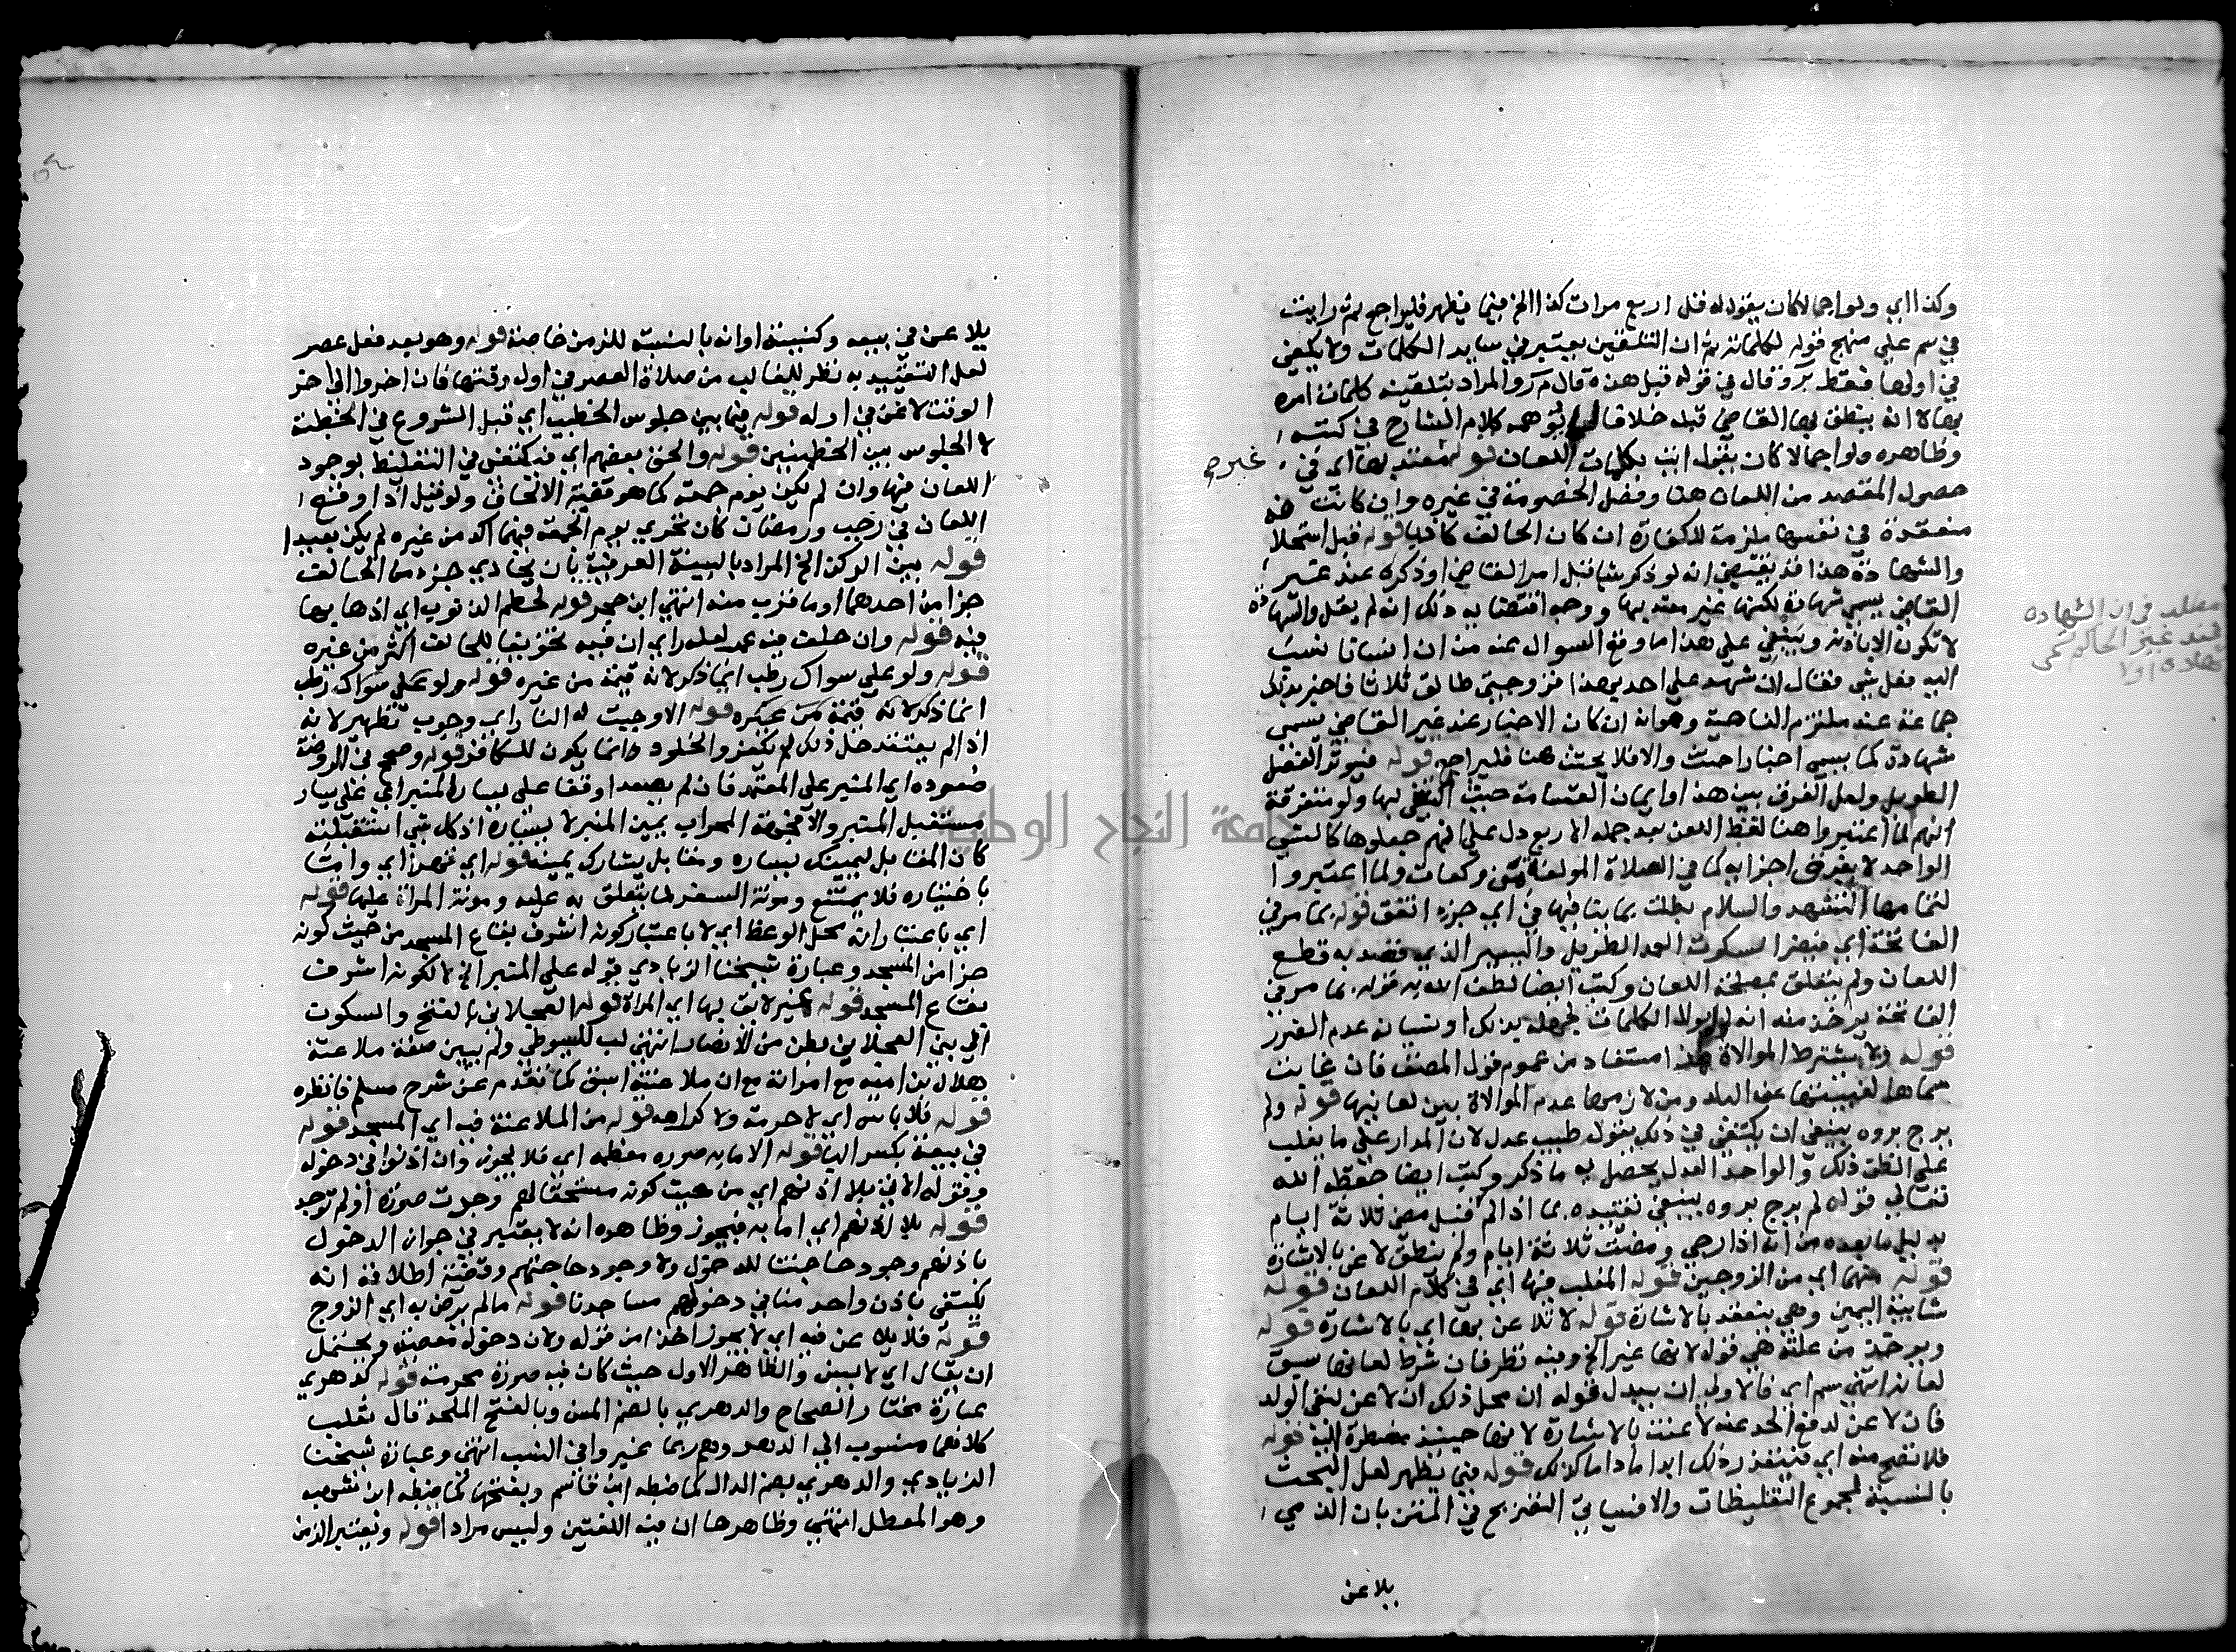 وكذا اي ولو اجمالا كان يقول له قل اربع مرات كذا الخ فيما يظهر فليراجع ثم رايت
في سم على منهج قوله كلماته ثم ان التلقين يعتبر في ساير الكلمات ولا يكفي
في اولها فقط م ر وقال في قوله قبل هذه قال م ر والمراد بتلقينه كلماته امره
بها لا انه ينطق بها القاضي قبله خلافا لما يوهمه كلام الشارح في كتبه
وظاهره ولو اجمالا كان يقول ايت بكلمات اللعان قوله معتد بها اي في
غيره
حصول المقصد من اللعان هنا وفصل الخصومة في غيره وان كانت
منعقدة في نفسها ملزمة للكفارة ان كان الحالف كاذبا قوله قبل استحلا
والشهادة هذا قد يقتضي انه لو ذكر شيا قبل امر القاضي او ذكره عند غير
القاضي يسمى شهادة لكنها غير معتد بها ووجه اقتضايه ذلك انه لم يقل والشهادة
لا تكون الا باذنه وينبغي على هذا ما وقع السوال عنه من ان انسانا نسب
اليه فعل شي فقال ان شهد علي احد بهذا فزوجتي طالق ثلاثا فاخبر بذلك
جماعة عند ملتزم الناحية وهو انه ان كان الاخبار عند غير القاضي يسمى
شهادة كما يسمى اخبارا حنث والا فلا يحنث هنا فليراجع قوله فيوثر الفصل
الطويل ولعل الفرق بين هذا وايمان القسامة حيث اكتفى بها ولو متفرقة
انهم لما اعتبروا هنا لفظ اللعن بعد جملة الاربع دل على انهم جعلوها كالشي
الواحد لا يفرق اجزايه كما في الصلاة المولفة من ركعات ولما اعتبروا
لتمامها التشهد والسلام بطلت بما ينافيها في اي جزء اتفق قوله بما مر في
الفاتحة اي فيضر السكوت العمد الطويل واليسير الذي قصد به قطع
اللعان ولم يتعلق بمصلحة اللعان وكتب ايضا لطف الله به قوله بما مر في
الفاتحة يوخذ منه انه لو والى الكلمات لجهله بذلك او نسيانه عدم الضرر
قوله ولا يشترط الموالاة هذا مستفاد من عموم قول المصنف فان غابت
سماها لغيبتها عن البلد ومن لازمها عدم الموالاة بين لعانيهما قوله ولم
يرج بروه ينبغي ان يكتفى في ذلك بقول طبيب عدل لان المدار على ما يغلب
على الظن ذلك والواحد العدل يحصل به ما ذكر وكتب ايضا حفظه الله
تعالى قوله لم يرج بروه ينبغي تقييده بما اذا لم قبل مضي ثلاثة ايام
بدليل ما بعده من انه اذا رجي ومضت ثلاثة ايام ولم ينطق لاعن بالاشارة
قوله منهما اي من الزوجين قوله المغلب فيها اي في كلام اللعان قوله
شايبة اليمين وهي ينعقد بالاشارة قوله لا تلاعن بها اي بالاشارة قوله
ويوخذ من علته هي قوله لانها غير الخ وفيه نظر فان شرط لعانها سبق
لعانه انتهى سم اي فالاولى ان يبدل قوله ان محل ذلك ان لاعن لنفي الولد
فان لاعن لدفع الحد عنه لاعنت بالاشارة لانها حينئذ مضطرة اليه قوله
فلا تصح منه اي فيتعذر ذلك ابدا ما دام كذلك قوله فيما يظهر لعل البحث
بالنسبة لمجموع التغليظات والا فسياتي التصريح في المتن بان الذمي
يلاعن
مطلب في ان الشهاده
عند غير الحاكم تسمى
شهادة او لا
يلاعن في بيعه وكنيسة او انه بالنسبة للزمن خاصة قوله وهو بعد فعل عصر
لعل التقييد به نظر للغالب من صلاة العصر في اول وقتها فان اخروا الى اخر
الوقت لاعن في اوله قوله فيما بين جلوس الخطيب اي قبل الشروع في الخطبة
لا الجلوس بين الخطبتين قوله والحق بعضهم اي فيكتفى في التغليظ بوجود
اللعان فيها وان لم يكن يوم جمعة كما هو قضية الالحاق ولو قيل اذا وقع
اللعان في رجب ورمضان كان تحري يوم الجمعة فيهما اكد من غيره لم يكن بعيدا
قوله بين الركن الخ المراد بالبينية العرفية بان يحاذي جزء من الحالف
جزا من احدهما او ما قرب منه انتهى ابن حجر قوله لحطم الذنوب اي اذهابها
فيه قوله وان حلف فيه عمر لعله راى ان فيه تخويفا للحالف اكثر من غيره
قوله ولو على سواك رطب انما ذكر لانه قيمة من غيره قوله ولو على سواك رطب
انما ذكر لانه قيمة من غيره قوله الا وجبت له النار اي وجوب تطهير لانه
اذا لم يعتقد حل ذلك لم يكفر والخلود دائما يكون للكافر قوله وصحح في الروضة
صعوده اي المنبر على المعتمد فان لم يصعد اوقفا على يسار المنبر اي على يسار
مستقبل المنبر والا فجهة المحراب يمين المنبر لا يساره اذ كل شي استقبلته
كان المقابل ليمينك يساره ومقابل يسارك يمينه قوله اي قصدا اي وامتنا
باختياره فلا يمتنع ومونة السفر لما يتعلق به عليه ومونة المراة عليها قوله
اي باعتبار انه محل الوعظ اي لا باعتبار كونه اشرف بقاع المسجد من حيث كونه
جزا من المسجد وعبارة شيخنا الزيادي قوله على المنبر اي لا لكونه اشرف
بقاع المسجد قوله غير لايق بها اي المراة قوله العجلاني بالفتح والسكوت
الى بني العجلان بطن من الانصار انتهى لب للسيوطي ولم يبين صفة ملاعنة
هلال بن اميه مع امراته مع ان ملاعنته اسبق كما تقدم عن شرح مسلم فانظره
قوله فلا باس اي لا حرمة ولا كراهه قوله من الملاعنة فيه اي المسجد قوله
في بيعة بكسر الباء قوله الا ما به صوره معظمه اي فلا يجوز وان اذنوا في دخوله
وقوله الاتي بلا اذنهم اي من حيث كونه مستحقا لهم وجدت صورة او لم توجد
قوله بلا اذنهم اي اما به فيجوز وظاهره انه لا يعتبر في جواز الدخول
باذنهم وجود حاجتنا للدخول ولا وجود حاجتهم وقضية اطلاقه انه
يكتفى باذن واحد منا في دخولهم مساجدنا قوله ما لم يرض به اي الزوج
قوله فلا يلاعن فيه اي لا يجوز اخذا من قوله ولان دخوله معصية ويحتمل
ان يقال اي لا يسن والظاهر الاول حيث كان فيه صورة محرمة قوله كدهري
عبارة مختار الصحاح والدهري بالضم المسن وبالفتح الملحد قال ثعلب
كلاهما منسوب الى الدهر وهم ربما غيروا في النسب انتهى وعبارة شيخنا
الزيادي والدهري بضم الدال كما ضبطه ابن قاسم وبفتحها كما ضبطه ابن شهبه
وهو المعطل انتهى وظاهرها ان فيه اللغتين وليس مرادا قوله ويعتبر الزمن